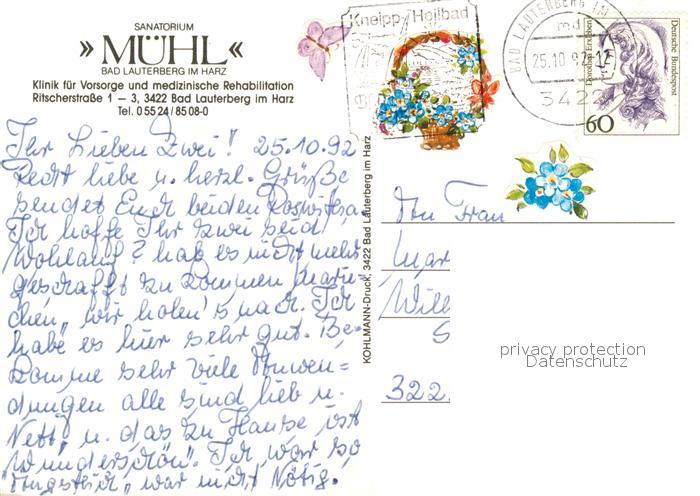 SANATORIUM
» MÜHL «
BAD LAUTERBERG IM HARZ
Klinik für Vorsorge und medizinische Rehabilitation
Ritscherstraße 1 – 3, 3422 Bad Lauterberg im Harz
Tel. 0 55 24 / 85 08-0
Ihr Lieben Zwei! 25.10.92
Recht liebe u. herzl. Grüße
sendet Euch beiden Roswitha.
Ich hoffe Ihr zwei seid
Wohlauf? hab es nicht mehr
geschafft zu kommen
chen, wir holen's nach. Ich
habe es hier sehr gut. Be-
komme sehr viele Anwen=
dungen alle sind lieb u.
Nett, u. das zu Hause ist
Wunderschön". Ich war so
"Ängstlich", war nicht Nötig.
KOHLMANN-Druck, 3422 Bad Lauterberg im Harz
Kneipp-Heilbad
BAD LAUTERBERG IM
md
25.10.92-12
342
Deutsche Bundespost
60
An Frau
Mar
Will
S
322
privacy protection
Datenschutz